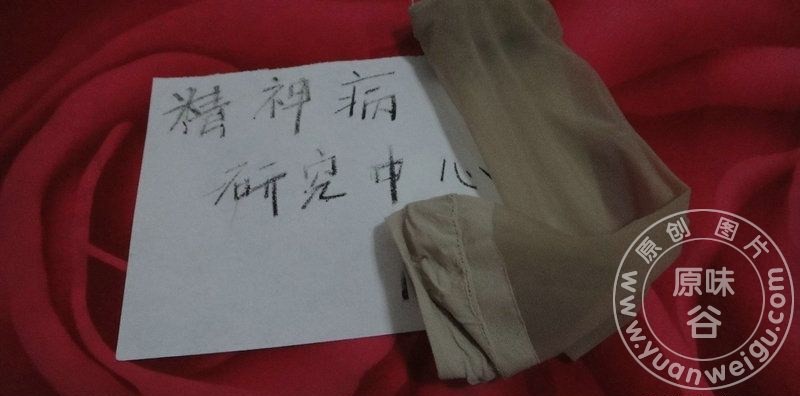 精神病
研究中心
原创图片
原味
谷
www.yuanweigu.com